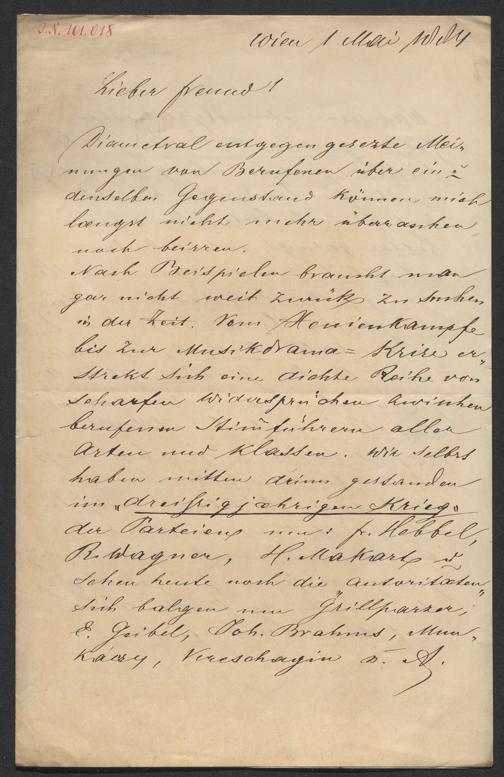 J.N. 161.018
Wien 1 Mai 1884
Lieber freund!
Diametral entgegen gesezte Mei„
nungen von Berufenen über ein u
denselben Gegenstand können mich
længst nicht mehr überraschen,
noch beirren.
Nach Beispielen braucht man
gar nicht weit zurük zu suchen
in der Zeit. Vom Xenienkampfe
bis zur Musikdrama=Krise er„
strekt sich eine dichte Reihe von
scharfen Widersprüchen zwischen
berufenen Stimführern aller
Arten und Klassen. Wir selbst
haben mitten drinn gestanden
im „dreißigjæhrigen Krieg„
der Parteien um: fr. Hebbel,
R. Wagner, H. Makart u
sehen heute noch die autoritæten„
sich balgen um Grillparzer,
E. Geibel, Joh. Brahms, Mun„
káczy, Vereschagin u. A.